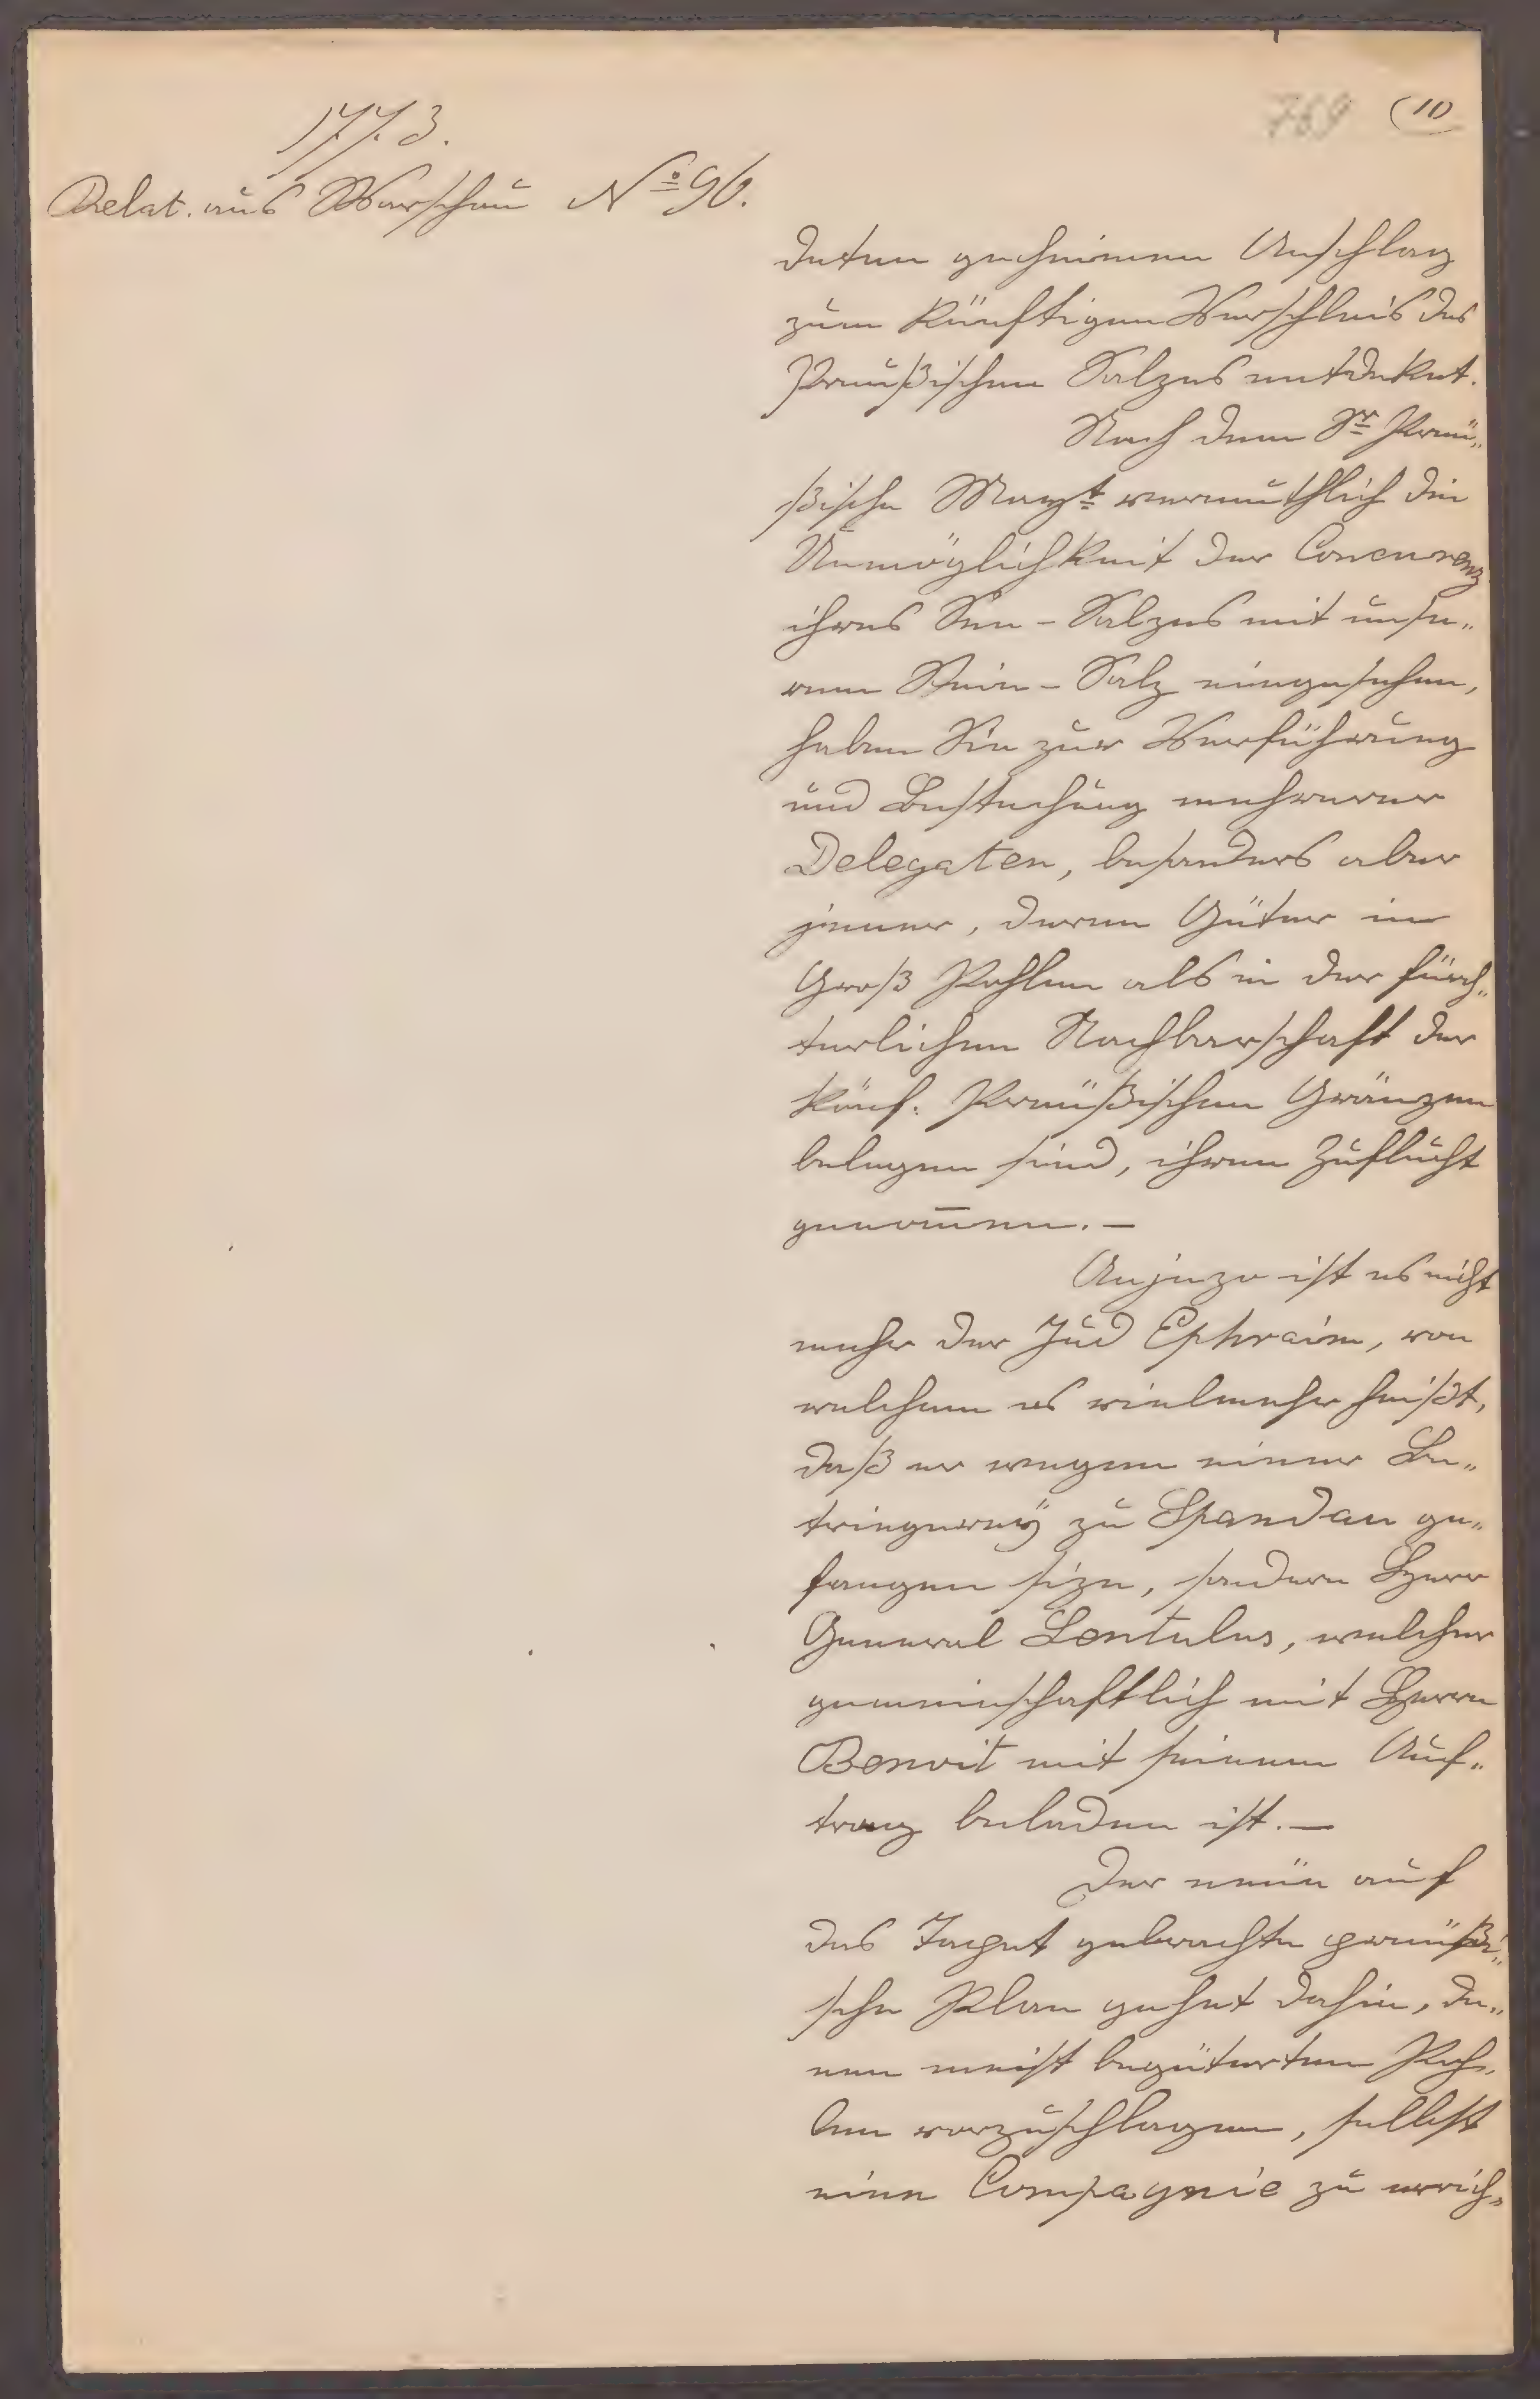 769 (10
1773.
Relat. aus Warschau No 96.
deten geheimen Anschlag
zum künftigen Verschleis des
Preußischen Salzes entdeket.
Nach dem Sr Preü„
ßische Mayt vermuthlich die
Unmöglichkeit der Concurenz
ihres See-Salzes mit unse„
rem Stein-Salz eingesehen,
haben Sie zur Verführung
und Bestechung mehrerer
Delegaten, besonders aber
jener, deren Güter in
Groß Pohlen als in der fürch„
terlichen Nachbarschaft der
könf. Preüßischen Gränzen
belegen sind, ihren Zuflucht
genom̄en. —
Anjezo ist es nicht
mehr der Jud Ephraim, von
welchem es vielmehr heißt,
daß er wegen einer Be„
triegereÿ zu Spandau ge„
fangen size, sondern Herr
General Lentulus, welcher
gemeinschaftlich mit Herrn
Benoit mit seinem Auf„
trag beladen ist. —
Der neüe auf
das Tapet gebrachte preüßi„
sche Plan gehet dahin, de„
nen meist begüterten Poh„
len vorzuschlagen, selbst
eine Compagnie zu errich„